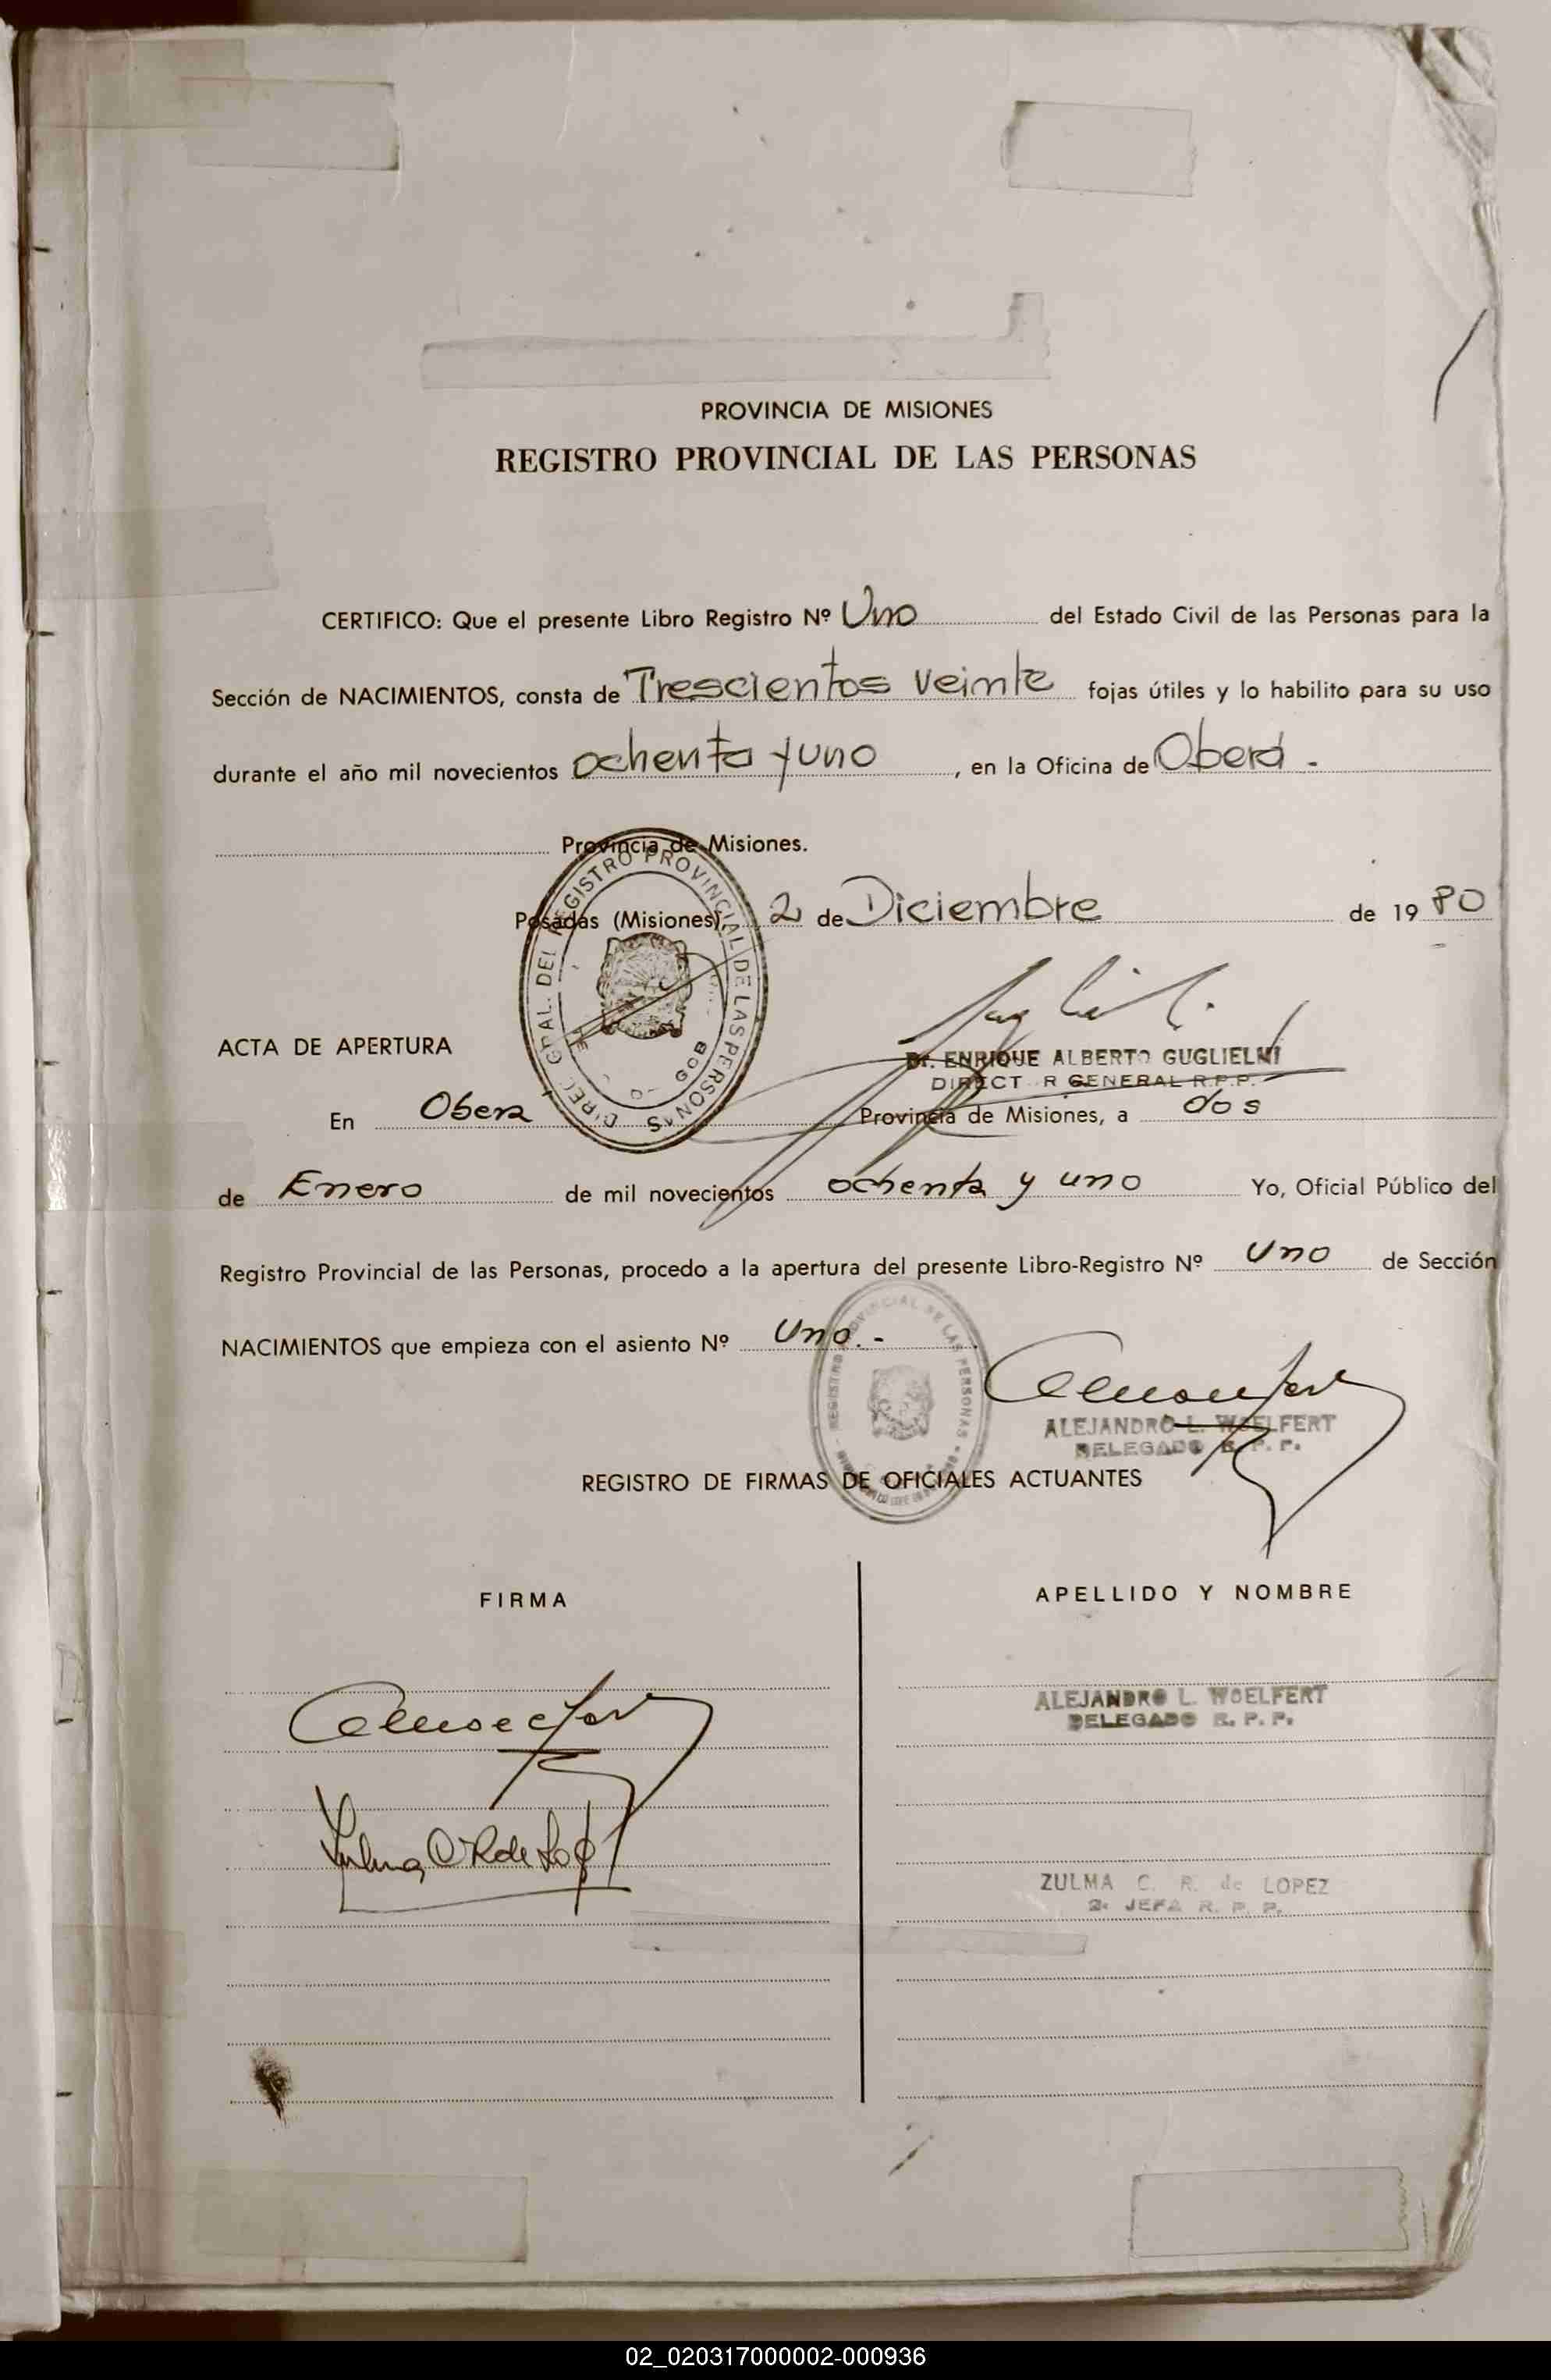 PROVINCIA DE MISIONES
REGISTRO PROVINCIAL DE LAS PERSONAS
CERTIFICO: Que el presente Libro Registro Nº Uno del Estado Civil de las Personas para la
Sección de NACIMIENTOS, consta de Trescientos veinte fojas útiles y lo habilito para su uso
durante el año mil novecientos ochenta y uno, en la Oficina de Oberá -
Provincia de Misiones.
Posadas (Misiones), 2 de Diciembre de 1980
DIREC. GRAL. DEL REGISTRO PROVINCIAL DE LAS PERSONAS
Dr. ENRIQUE ALBERTO GUGLIELMI
DIRECTOR GENERAL R.P.P.
ACTA DE APERTURA
En Obera Provincia de Misiones, a dos
de Enero de mil novecientos ochenta y uno Yo, Oficial Público del
Registro Provincial de las Personas, procedo a la apertura del presente Libro-Registro Nº Uno de Sección
NACIMIENTOS que empieza con el asiento Nº Uno.-
ALEJANDRO L. WOELFERT
DELEGADO R. P. P.
REGISTRO DE FIRMAS DE OFICIALES ACTUANTES
FIRMA APELLIDO Y NOMBRE
ALEJANDRO L. WOELFERT
DELEGADO R. P. P.
Zulma C R de Lop
ZULMA C. R. de LOPEZ
2º JEFA R. P. P.
02_020317000002-000936